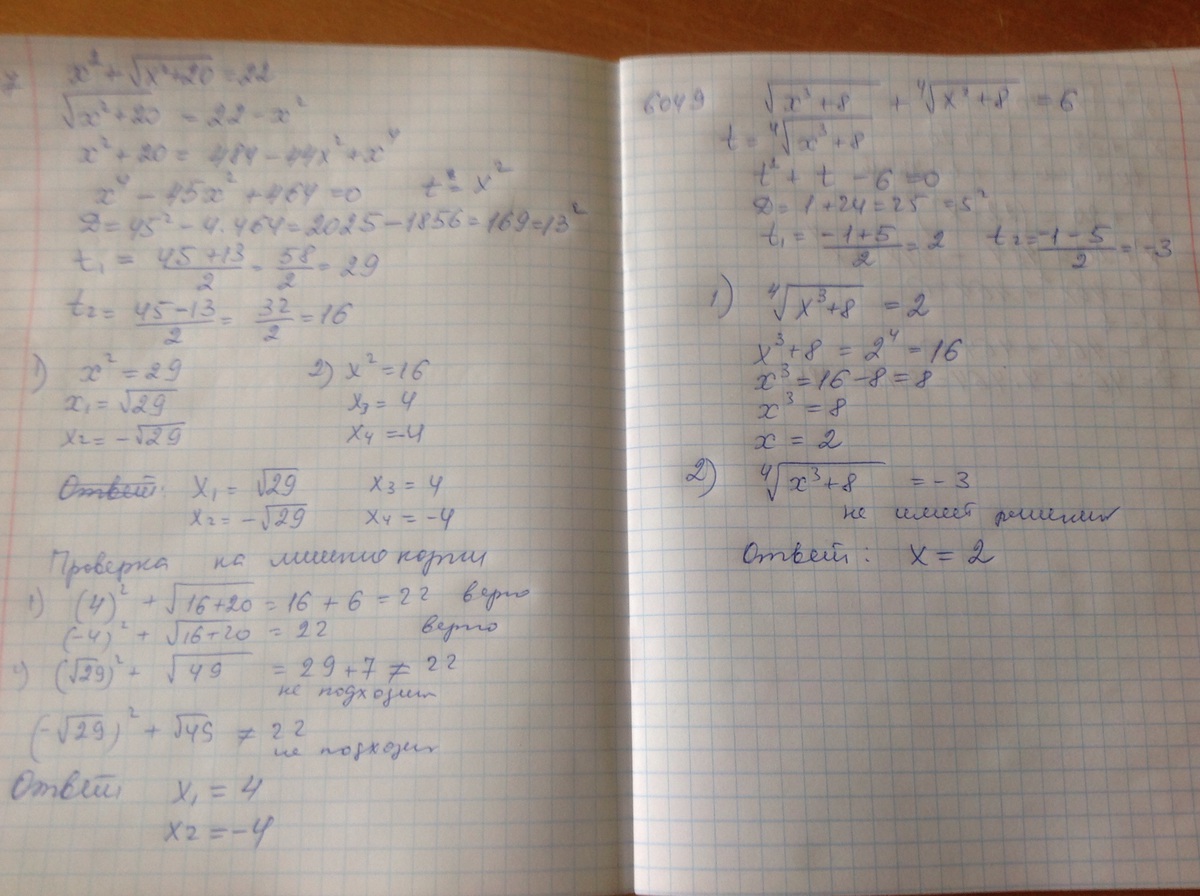 7 x² + √(x²+20) = 22
√(x²+20) = 22 - x²
x² + 20 = 484 - 44x² + x⁴
x⁴ - 45x² + 464 = 0 t = x²
D = 45² - 4·464 = 2025 - 1856 = 169 = 13²
t₁ = (45+13)/2 = 58/2 = 29
t₂ = (45-13)/2 = 32/2 = 16
1) x² = 29 2) x² = 16
x₁ = √29 x₃ = 4
x₂ = -√29 x₄ = -4
Ответ: x₁ = √29 x₃ = 4
x₂ = -√29 x₄ = -4
Проверка на лишние корни
1) (4)² + √(16+20) = 16 + 6 = 22 верно
(-4)² + √(16+20) = 22 верно
2) (√29)² + √49 = 29 + 7 ≠ 22
не подходит
(-√29)² + √49 ≠ 22
не подходит
Ответ: x₁ = 4
x₂ = -4
6049 √(x³+8) + ⁴√(x³+8) = 6
t = ⁴√(x³+8)
t² + t - 6 = 0
D = 1 + 24 = 25 = 5²
t₁ = (-1+5)/2 = 2 t₂ = (-1-5)/2 = -3
1) ⁴√(x³+8) = 2
x³ + 8 = 2⁴ = 16
x³ = 16 - 8 = 8
x³ = 8
x = 2
2) ⁴√(x³+8) = -3
не имеет решения
Ответ: x = 2